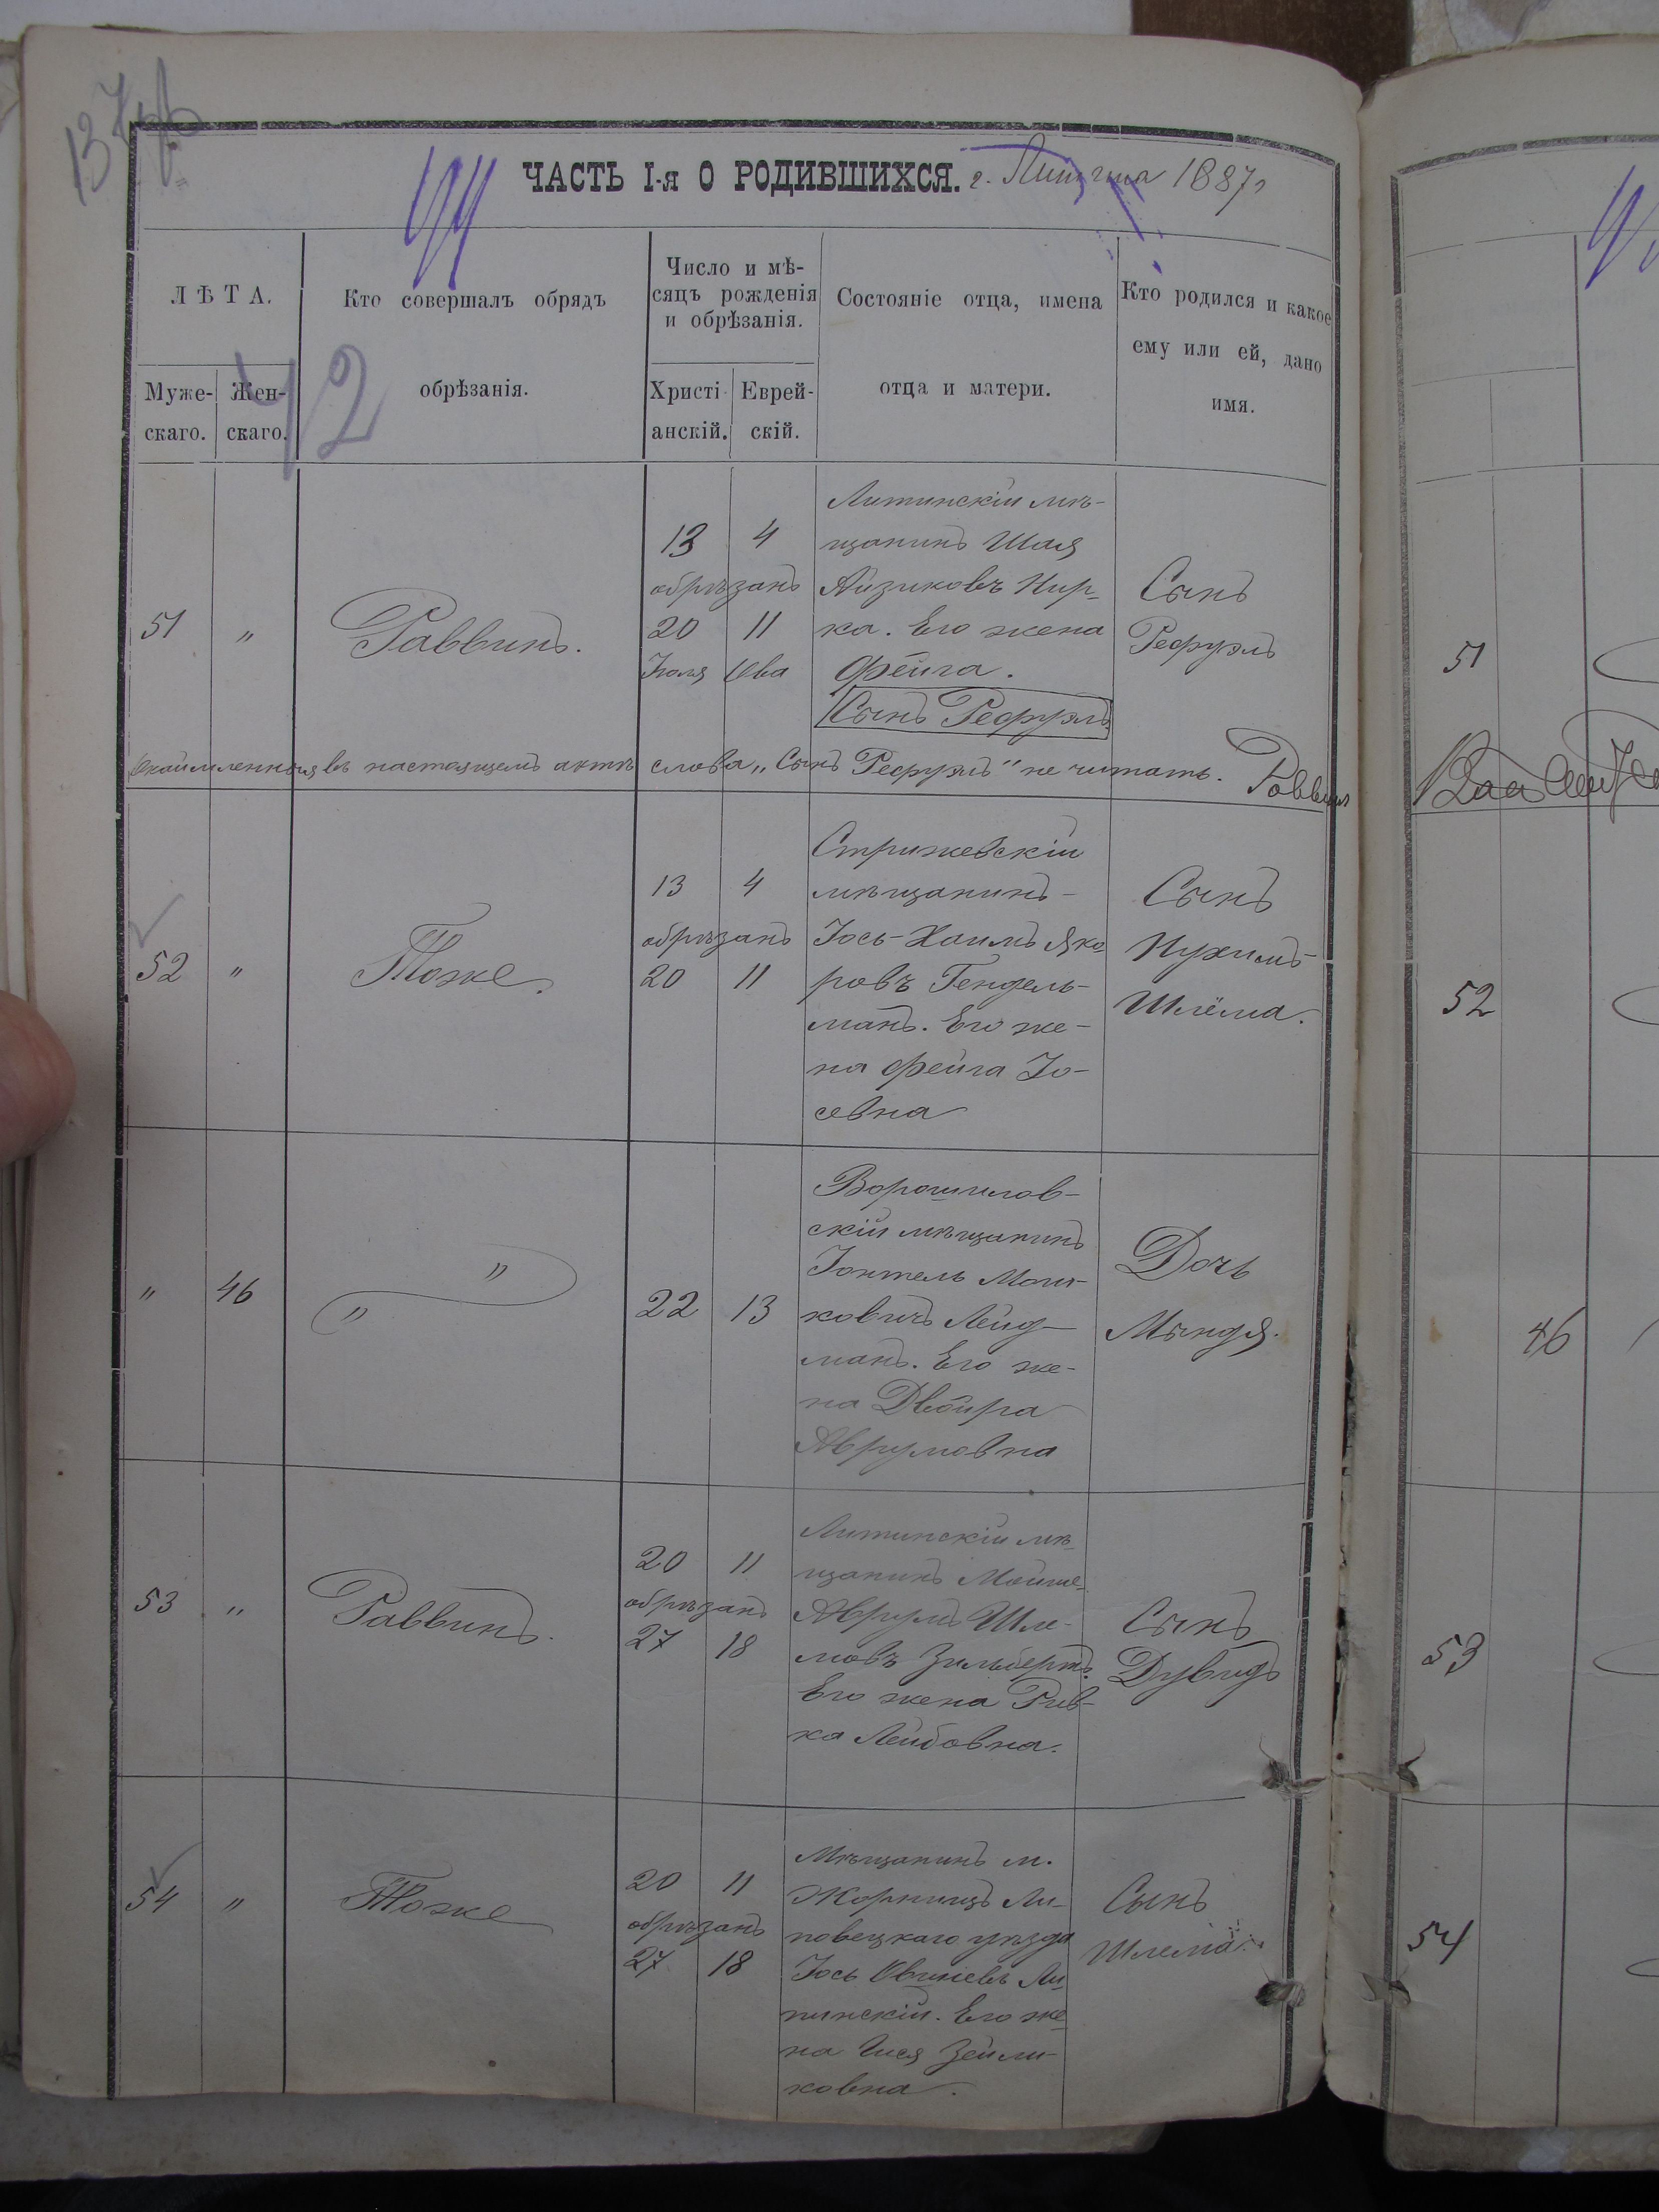 ЧАСТЬ I-я О РОДИВШИХСЯ. г. Литина 1887 г
ЛѢТА.
Муже-
скаго.
Жен-
скаго.
Кто совершалъ обрядъ
обрѣзанія.
Число и мѣ-
сяцъ рожденія
и обрѣзанія.
Христі-
анскій.
Еврей-
скій.
Состояніе отца, имена
отца и матери.
Кто родился и какое
ему или ей, дано
имя.
42
51 "
Раввинъ.
13 4
обрѣзанъ
20 11
Іюля Ова
Литинскій мѣ-
щанинъ Шая
Айзиковъ Нир-
ка. Его жена
Фейга.
Сынъ Рефуэлъ
Сынъ
Рефуэлъ
Окаймленныя въ настоящемъ актѣ слова „Сынъ Рефуэлъ" не читать. Раввинъ
52 "
Тоже.
13 4
обрѣзанъ
20 11
Стрижевскій
мѣщанинъ-
Іось-Хаимъ Яко-
ровъ Гендель-
манъ. Его же-
на Фейга Іо-
севна
Сынъ
Нухимъ-
Шлёма.
" 46
" "
22 13
Ворошилов-
скій мѣщанинъ
Іонтель Мош-
ковичъ Лейд-
манъ. Его же-
на Двойра
Аврумовна
Дочь
Мындя.
53 "
Раввинъ.
20 11
обрѣзанъ
27 18
Литинскій мѣ-
щанинъ Мойше-
Аврумъ Шле-
мовъ Зильбертъ.
Его жена Рив-
ка Лейбовна.
Сынъ
Дувидъ
54 "
Тоже
20 11
обрѣзанъ
27 18
Мѣщанинъ м.
Жорнищъ Ли-
повецкаго уѣзда
Іось Овшіевъ Ли-
пинскій. Его же-
на Шея Зейли-
ковна.
Сынъ
Шлема
51
52
46
53
54